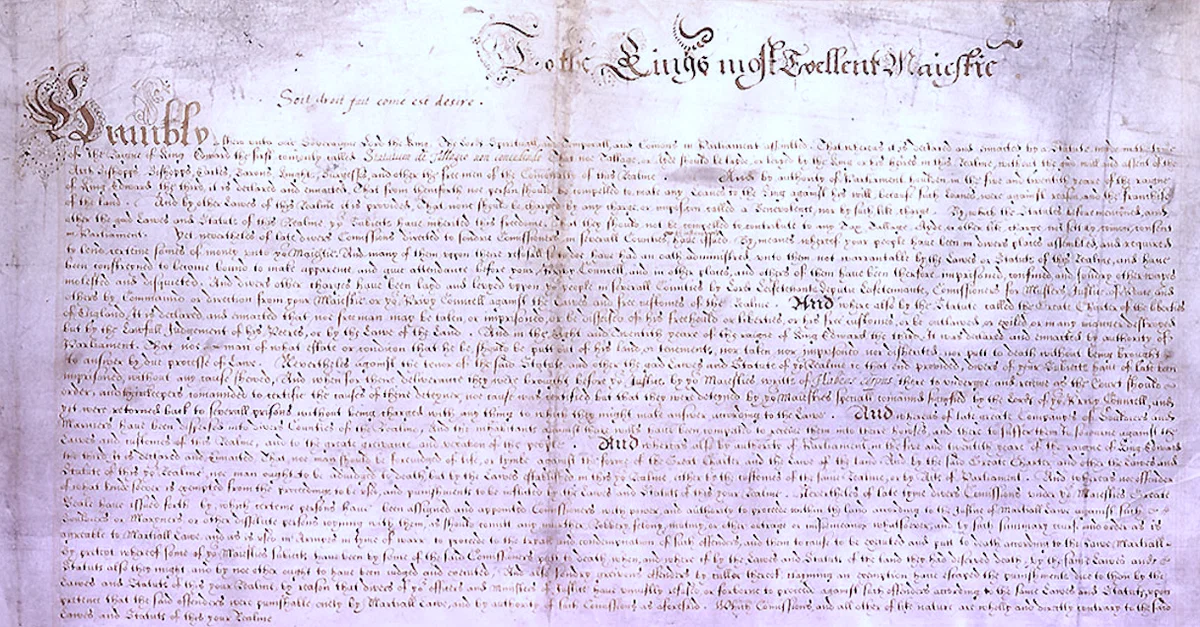 To the Kings most Excellent Maiestie
Soit droit fait come est desire.
Humbly shew unto our Soveraigne Lord the King the Lords Spirituall and Temporall and Comons in Parliament assembled That whereas it is declared and enacted by a Statute made in the tyme
of the Raigne of King Edward the first comonly called Statutum de Tallagio non concedendo That noe Tallage or Aide should be laid or levyed by the King or his heires in this Realme without the good will and assent of the
Arch Bishopps Bishopps Earles Barons Knights Burgesses and other the free men of the Cominalty of this Realme And by authority of Parliament holden in the five and twentith yeare of the raigne
of King Edward the third, it is declared and enacted, That from thenceforth noe person should be compelled to make any Loanes to the King against his will because such loanes were against reason and the franchise
of the land. And by other Lawes of this Realme it is provided, that none should be charged by any charge or imposition called a Benevolence nor by such like charge. By which the Statutes before mentioned and
other the good Lawes and Statutes of this Realme yor Subiects have inherited this freedome That they should not be compelled to contribute to any Tax Tallage Ayde or other like charge not sett by comon consent
in Parliament. Yet neverthelesse of late divers Comissions directed to sondry Comissioners in severall Counties have issued By meanes whereof your people have been in divers places assembled and required
to lend certeine somes of money unto yor Maiestie And many of them upon there refusall soe to doe have had an oath administred unto them not warrantable by the Lawes or Statutes of this Realme, and have
been constreyned to become bound to make apparence and give attendance before your Privy Councell and in other places, and others of them have been therfore imprisoned, confined and sondry other wayes
molested and disquieted. And divers other charges have been layd and levyed upon people in severall Counties by Lord Leiftenants deputie Leiftenants, Comissioners for Musters, Justices of Peace and
others by Commaund or direction from your Maiestie or yor Privy Councell against the Lawes and free customes of the Realme. And where also by the Statute called the Great Charter of the liberties
of England, it is declared and enacted that noe freeman may be taken or imprisoned or be disseised of his freehould or liberties or his free customes, or be outlawed or exiled or in any manner destroyed
but by the Lawfull Judgement of his Peeres, or by the Lawe of the Land. And in the eight and twentith yeere of the raigne of King Edward the third, it was declared and enacted by authority of
Parliament. That noe man of what estate or condition that he be, should be putt out of his land or tenements, nor taken nor imprisoned nor disherited nor putt to death without being brought
to answer by due processe of Lawe. Neverthelesse against the tenor of the said Statutes and other the good Lawes and Statutes of yor Realme to that end provided, divers of yor Subiects have of late been
imprisoned, without any cause shewed, And when for there deliverance they were brought before yor Justices by yor Maiesties writts of Habeas Corpus there to undergoe and receive as the Court should
order, and their keepers comaunded to certifie the causes of there deteyner, noe cause was certified but that they were deteyned by yor Maiesties speciall comaund signified by the Lords of yor Privy Councell, and
yet were returned back to severall prisons without being charged with any thing to which they might make answere according to the Lawe. And whereas of late great Companyes of Souldiers and
Marriners have been dispersed into divers Counties of the Realme And the inhabitants against there wills have been compelled to receive them into there houses, and there to suffer them to soiourne against the
Lawes and customes of this Realme, and to the great greivance and vexation of the people. And whereas also by authority of Parliament in the five and twentith yeare of the raigne of King Edward
the third, it is declared and enacted That noe man should be forejudged of life, or lymbe against the forme of the Great Charter and the Lawe of the land. And by the said Greate Charter and other the Lawes and
Statutes of this yor Realme, noe man ought to be adiudged to death, but by the Lawes established in this yor Realme, either by the customes of the same Realme, or by Acts of Parliament. And whereas noe offender
of what kinde soever is exempted from the proceedings to be used, and punishments to be inflicted by the Lawes and Statutes of this your Realme. Neverthelesse of late tyme divers Comissions under yor Maiesties Greate
Seale have issued forth by which certeine persons have been assigned and appointed Comissioners with power and authority to proceede within the land according to the Justice of Martiall Lawe against such
Souldiers or Marriners or other dissolute persons ioyning with them, as should comitt any murther Robbery felony mutiny or other outrage or misdemeanor whatsoever, and by such sumary course and order as is
agreable to Martiall Lawe and as is used in Armyes in tyme of warr to proceede to the tryall and condemnation of such offenders, and them to cause to be executed and putt to death according to the Lawe Martiall.
By pretext whereof some of yor Maiesties Subiects have been by some of the said Comissioners to death, when and where if by the Lawes and Statutes of the land they had deserved death, by the same Lawes and
Statutes also they might, and by noe other ought to have been iudged and executed. And also sondry greivous offenders by cullor thereof clayming an exemption have escaped the punishments due to them by the
Lawes and Statutes of this your Realme, by reason that divers of yor officers and Ministers of Justice have uniustly refused or forborne to proceed against such offenders according to the same Lawes and Statutes, upon
pretence that the said offenders were punishable onely by Martiall Lawe, and by authority of such Comissions as aforesaid. Which Comissions, and all other of like nature are wholly and directly contrary to the said
Lawes and Statutes of this your Realme